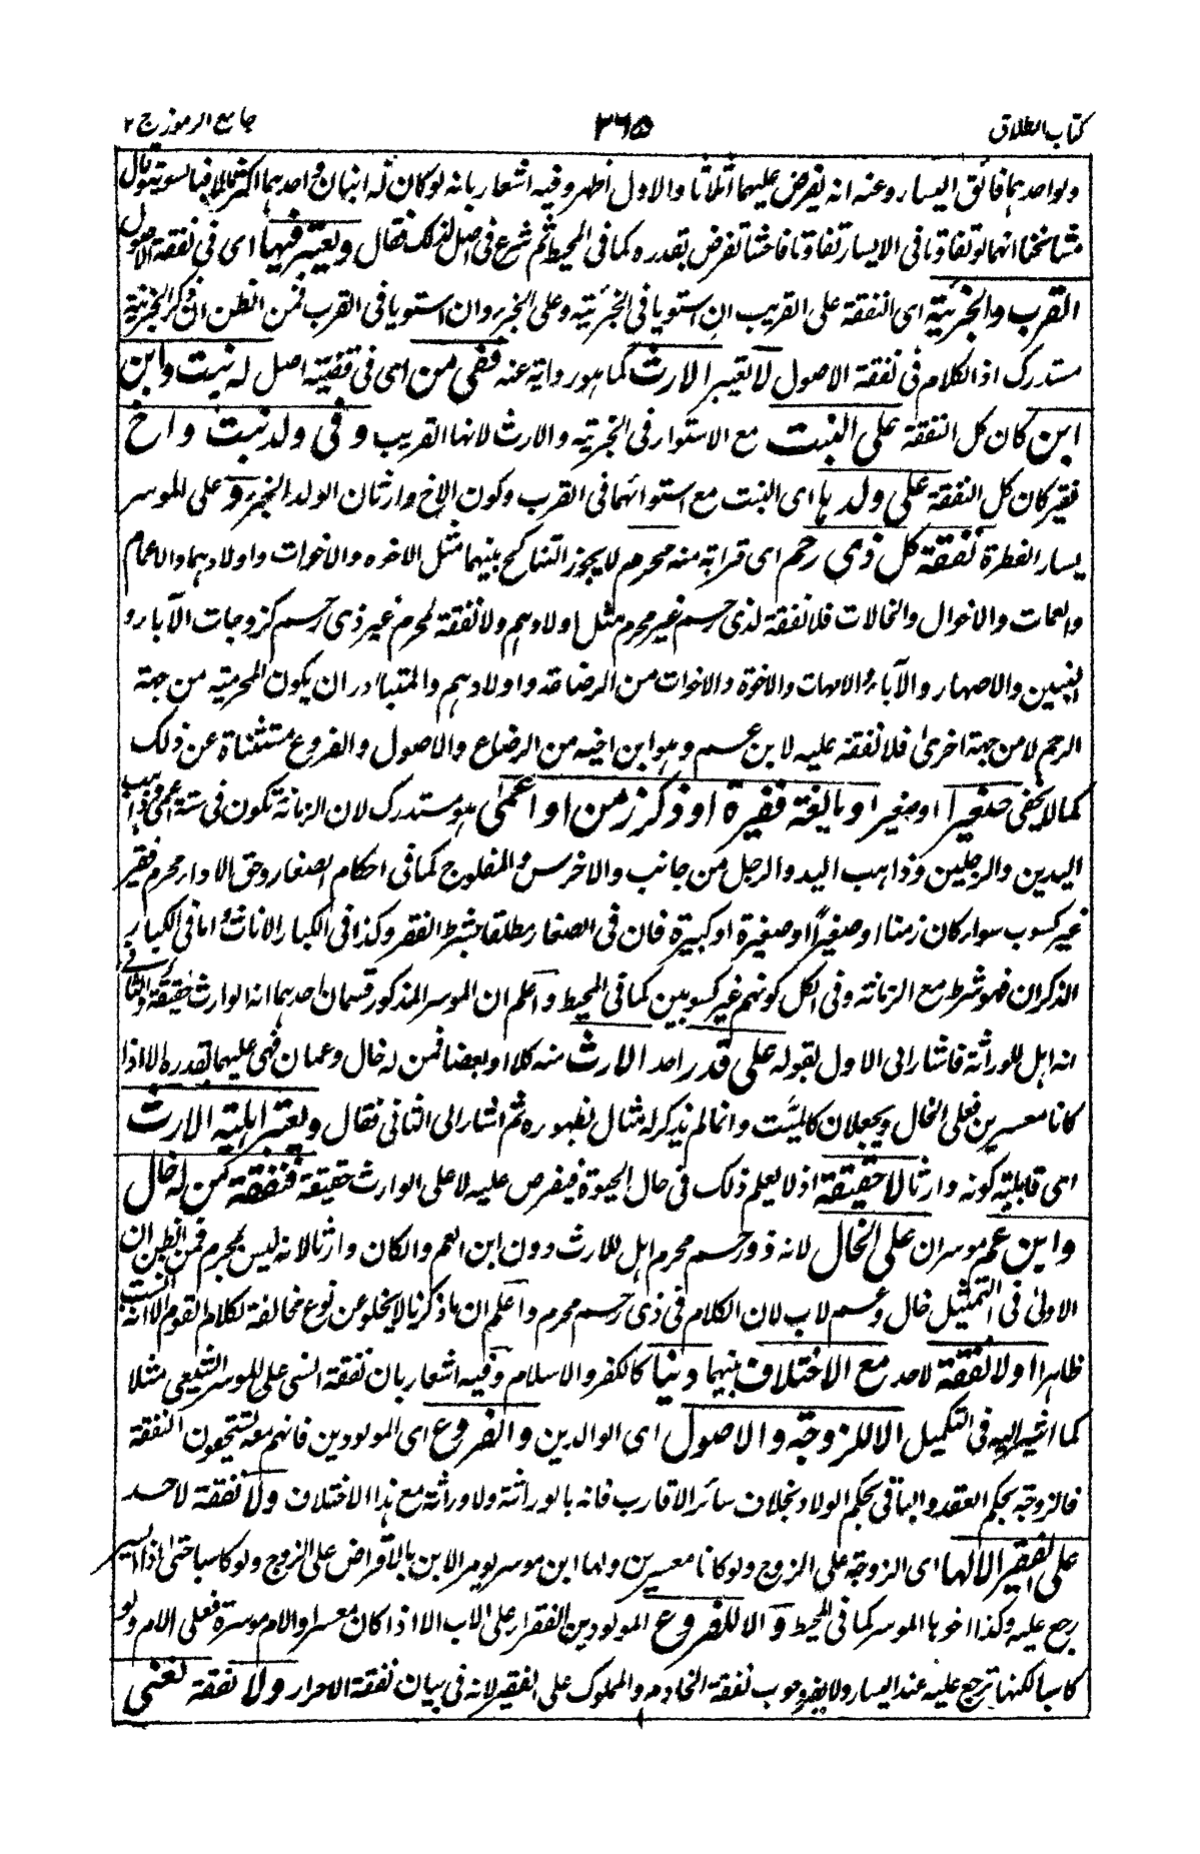 كتاب الطلاق
٣٦٥
جامع الرموز ج ٢
ولواحدهما فائق اليسار وعنه انه يفرض عليهما اثلاثا والاول أظهر وفيه اشعار بانه لوكان له ابنان واحدهما اكثر مالا فبالسوية وقال
مشائخنا انهما لو تفاوتا فى الايسار تفاوتا فاحشا تفرض بقدره كما فى المحيط ثم شرع فى اصل لذلك فقال ويعتبر فيها اى فى نفقة الاصول
القرب والجزئية اى النفقة على القريب ان استويا فى الجزئية وعلى الجزء وان استويا فى القرب فمن الظن ان ذكر الجزئية
مستدرك اذ الكلام فى نفقة الاصول لا تعتبر الارث كما هو رواية عنه ففى من اى فى قضية اصل له بنت وابن
ابن كان كل النفقة على البنت مع الاستواء فى الجزئية والارث لانها القريب وفى ولد بنت واخ
فقير كان كل النفقة على ولدها اى البنت مع استوائهما فى القرب وكون الاخ وارثا لان الولد الجزء و على الموسر
يسار الفطرة نفقة كل ذى رحم اى قرابة منه محرم لا يجوز التناكح بينهما مثل الاخوه والاخوات واولادهما والاعمام
والعمات والاخوال والخالات فلا نفقة لذى رحم غير محرم مثل اولادهم ولا نفقة لمحرم غير ذى رحم كزوجات الآباء و
البنين والاصهار والآباء والامهات والاخوة والاخوات من الرضاعة واولادهم والمتبادر ان يكون المحرمية من جهة
الرحم لا من جهة اخرى فلا نفقة عليه لابن عم وهو ابن اخيه من الرضاع والاصول والفروع مستثناة عن ذلك
كما لا يخفى صغيرا او صغير او بالغة فقيرة او ذكر زمن او اعمى هو مستدرك لان الزمانة تكون فى ستة اعمى وذاهب
اليدين والرجلين وذاهب اليد والرجل من جانب والاخرس والمفلوج كما فى احكام الصغار وحق الاداء محرم فقير
غير كسوب سواء كان زمنا او صغيراً او صغيرة او كبيرة فان فى الصغار مطلقا بشرط الفقر وكذا فى الكبار الاناث واما فى الكبار
الذكران فهو شرط مع الزمانة وفى الكل كونهم غير كسوبين كما فى المحيط واعلم ان الموسر المذكور قسمان احدهما انه الوارث حقيقة والثانى
انه اهل للوراثة فاشار الى الاول بقوله على قدر احد الارث منه كلا او بعضا فمن له خال وعمان فهى عليهما بقدره الا اذا
كانا معسرين فعلى الخال ويجعلان كالميّت وانما لم يذكر له مثال لظهوره ثم اشار الى الثانى فقال ويعتبر اهلية الارث
اى قابلية كونه وارثا لا حقيقة اذ لا يعلم ذلك فى حال الحيوة فيفرض عليه لا على الوارث حقيقة فنفقة من له خال
وابن عم موسران على الخال لانه ذو رحم محرم اهل للارث دون ابن العم والكان وارثا لانه ليس بمحرم فمن الظن ان
الاولى فى التمثيل خال وعم لاب لان الكلام فى ذى رحم محرم واعلم ان ما ذكرنا لا يخلو عن نوع مخالفة لكلام القوم الا انه انسب
ظاهرا ولا نفقة لاحد مع الاختلاف بينهما دينا كالكفر والاسلام وفيه اشعار بان نفقة السنى على الموسر الشيعى مثلا
كما اشير اليه فى التكميل الا للزوجة والاصول اى الوالدين والفروع اى المولودين فانهم معه يستحقون النفقة
فالزوجة بحكم العقد والباقى بحكم الولاد بخلاف سائر الاقارب فانه بالوراثة ولا وراثة مع هذا الاختلاف ولا نفقة لاحد
على الفقير الا لها اى الزوجة على الزوج ولو كانا معسرين ولها ابن موسر يومر الابن بالاقراض على الزوج ولو كاسبا حتى اذا ايسر
رجع عليه وكذا اخوها الموسر كما فى المحيط والا للفروع المولودين الفقراء على الاب الا اذا كان معسرا والام موسرة فعلى الام ولو
كاسبا لكنها ترجع عليه عند اليسار ولا يضر وجوب نفقة الخادم والمملوك على الفقير لانه فى بيان نفقة الاحرار ولا نفقة لغنى